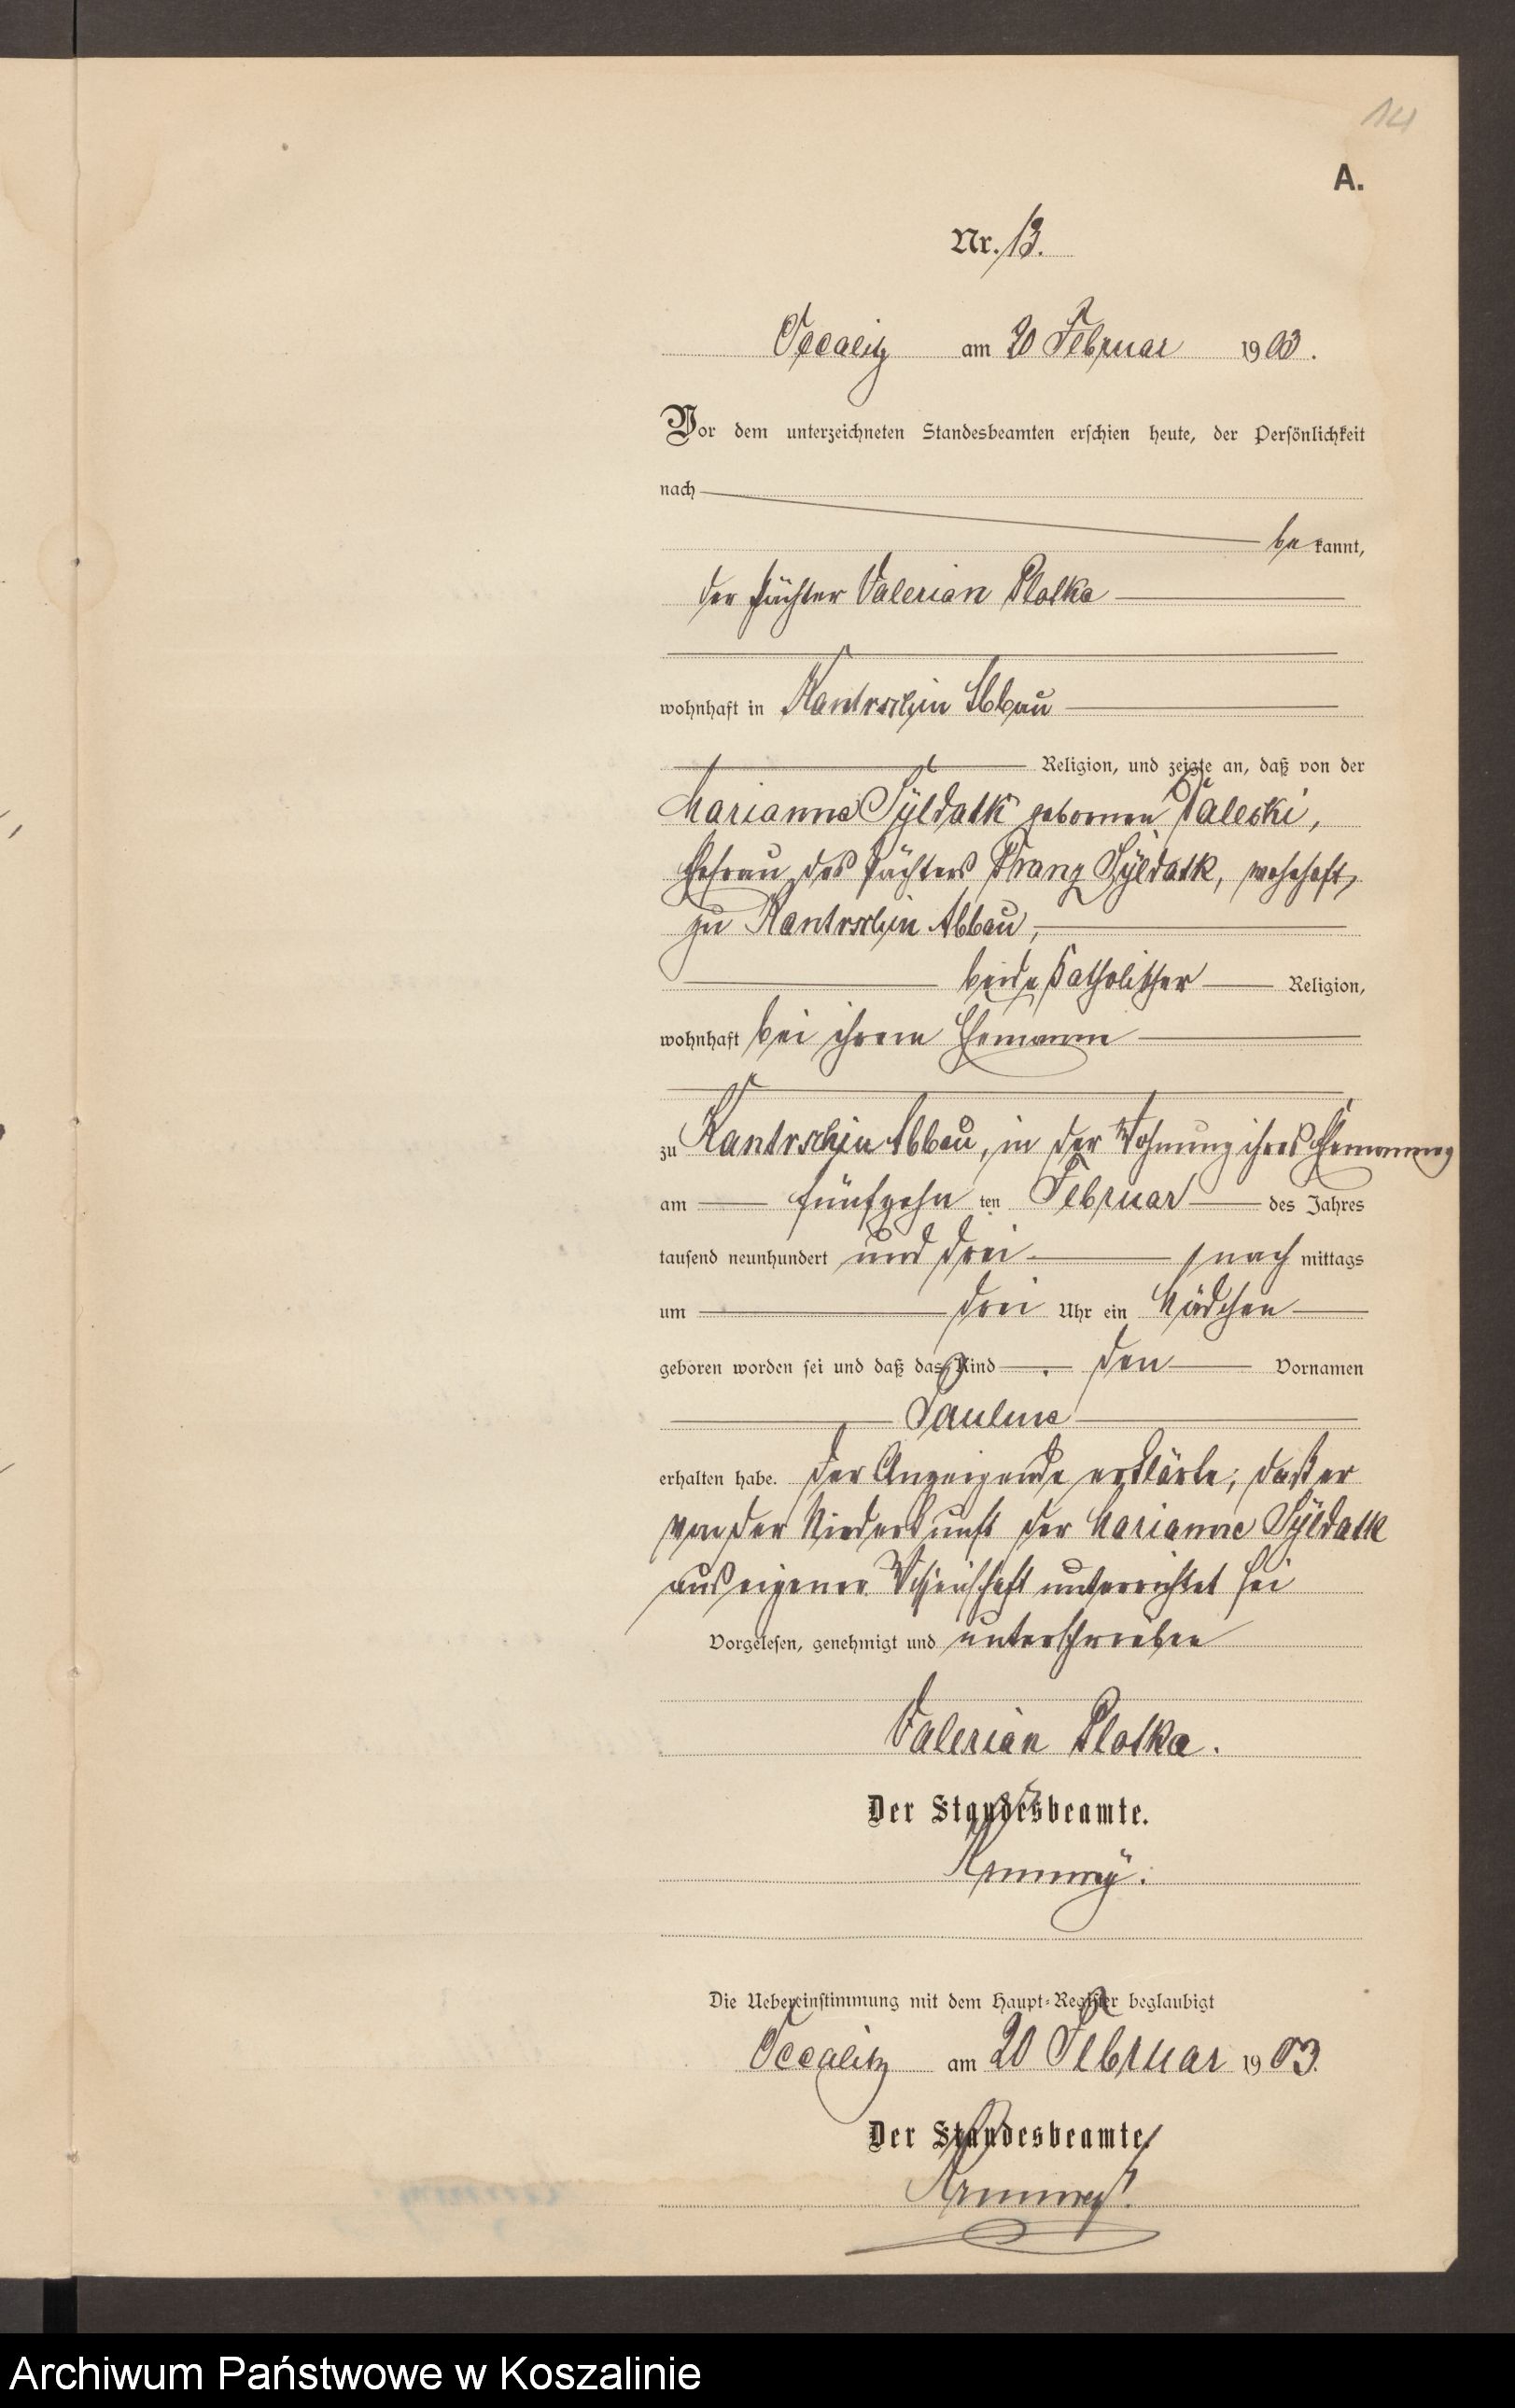 14
A.
Nr. 13.
Occalitz am 20 Februar 1903.
Vor dem unterzeichneten Standesbeamten erschien heute, der Persönlichkeit
nach
bekannt,
der Pächter Valerian Plotka
wohnhaft in Kantrschin Abbau
Religion, und zeigte an, daß von der
Marianna Syldatk geborenen Paleski,
Ehefrau des Pächters Franz Syldatk, wohnhaft
zu Kantrschin Abbau,
beide katholischer Religion,
wohnhaft bei ihrem Ehemann
zu Kantrschin Abbau, in der Wohnung ihres Ehemannes
am fünfzehnten Februar des Jahres
tausend neunhundert und drei nachmittags
um drei Uhr ein Mädchen
geboren worden sei und daß das Kind den Vornamen
Pauline
erhalten habe. Der Anzeigende erklärte, daß er
von der Niederkunft der Marianne Syldatk
aus eigener Wissenschaft unterrichtet sei
Vorgelesen, genehmigt und unterschrieben
Valerian Plotka.
Der Standesbeamte.
Die Uebereinstimmung mit dem Haupt-Register beglaubigt
Occalitz am 20 Februar 1903.
Der Standesbeamte.
Archiwum Państwowe w Koszalinie